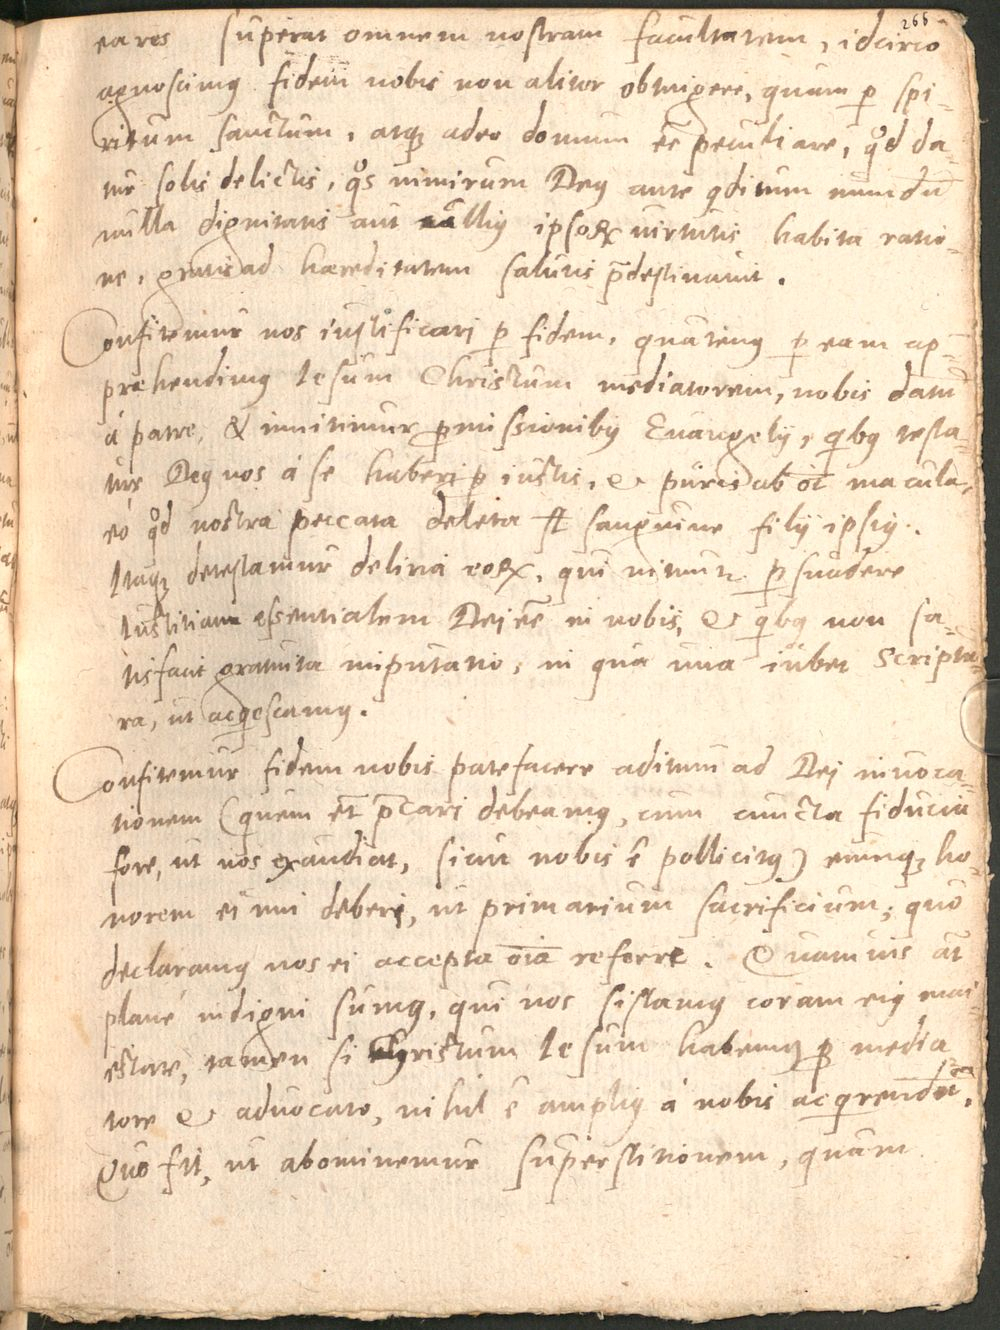 266
ea res superat omnem nostram facultatem, idcirco
agnoscimꝰ fidem nobis non aliter obtingere, quam ꝑ spi-
ritum sanctum, atqꝫ adeo donum eē peculiare, qd̕ da-
tur solis delictis, qos nimirum Deꝰ ante ꝯditum mundū
nulla dignitatis aut nulliꝰ ipsoꝝ uirtutis habita ratio-
ne, gratis ad haereditatem salutis p̄destinauit.
Confitemur nos iustificari ꝑ fidem, quatenꝰ ꝑ eam ap-
prehendimꝰ Iesum Christum mediatorem, nobis datū
à patre, & innitimur ꝓmissionibꝰ Euangelij, qibꝰ testa-
tur Deꝰ nos à se haberi ꝓ iustis, & puris ab oī macula,
eò qd̕ nostra peccata deleta st̄ sanguine filij ipsiꝰ.
Itaqꝫ detestamur deliria eoꝝ, qui nituntr ꝑsuadere
Iustitiam essentialem Dei eē in nobis, & qibꝰ non sa-
tisfacit gratuita imputatio, in qua una iubet Scriptu-
ra, ut acqiescamꝰ.
Confitemur fidem nobis patefacere aditum ad Dei inuoca-
tionem (quem et̄ p̄cari debeamꝰ, cum cuncta fiducia
fore, ut nos exaudiat, sicut nobis ē pollicitꝰ) eumqꝫ ho-
norem ei uni deberi, ut primarium sacrificium; quo
declaramꝰ nos ei accepta oīa referre. Quamuis aūt
planè indigni sumꝰ, qui nos sistamꝰ coram eiꝰ mai-
estate, tamen si Christum Iesum habemꝰ ꝓ media
tore & aduocato, nihil ē ampliꝰ à nobis acqirendū.
Quo fit, ut abominemur superstitionem, quam